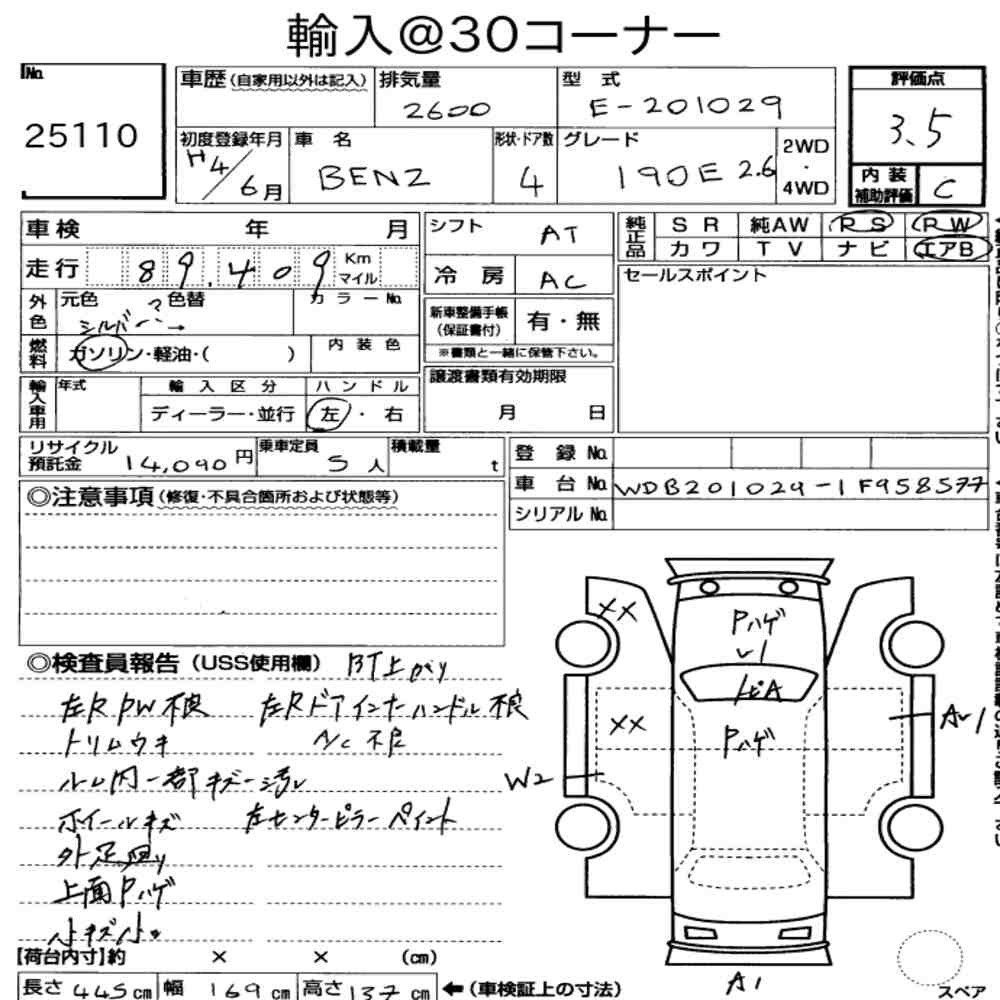 輸入@30コーナー
No.
25110
車歴(自家用以外は記入)
排気量
2600
型 式
E-201029
評価点
3.5
初度登録年月
H4/6月
車 名
BENZ
形状・ドア数
4
グレード
190E 2.6
2WD
・
4WD
内 装
補助評価
C
車検 年 月
シフト
AT
純正品
SR 純AW PS PW
カワ TV ナビ エアB
走行 89,409 Km マイル
冷 房
AC
セールスポイント
外色
元色 色替
シルバー ? →
カラーNo.
新車整備手帳
(保証書付)
有・無
※書類と一緒に保管下さい。
燃料
ガソリン・軽油・( )
内装色
輸入車用
年式
輸入区分
ディーラー・並行
ハンドル
左・右
譲渡書類有効期限
月 日
リサイクル
預託金 14,090円
乗車定員
5人
積載量
t
登 録 No.
車 台 No. WDB201029-1F958577
シリアル No.
◎注意事項(修復・不具合箇所および状態等)
◎検査員報告(USS使用欄) BT上がり
左RPW不良 左Rドアインナーハンドル不良
トリムウキ A/C不良
ルーム内一部キズ汚レ
ホイールキズ 左センターピラーペイント
外足廻り
上面Pハゲ
小キズ小凹
XX
Pハゲ
トビA
XX
Pハゲ
W2
A1
【荷台内寸】約 × × (cm)
長さ 445cm 幅 169cm 高さ 137cm ←(車検証上の寸法)
スペア